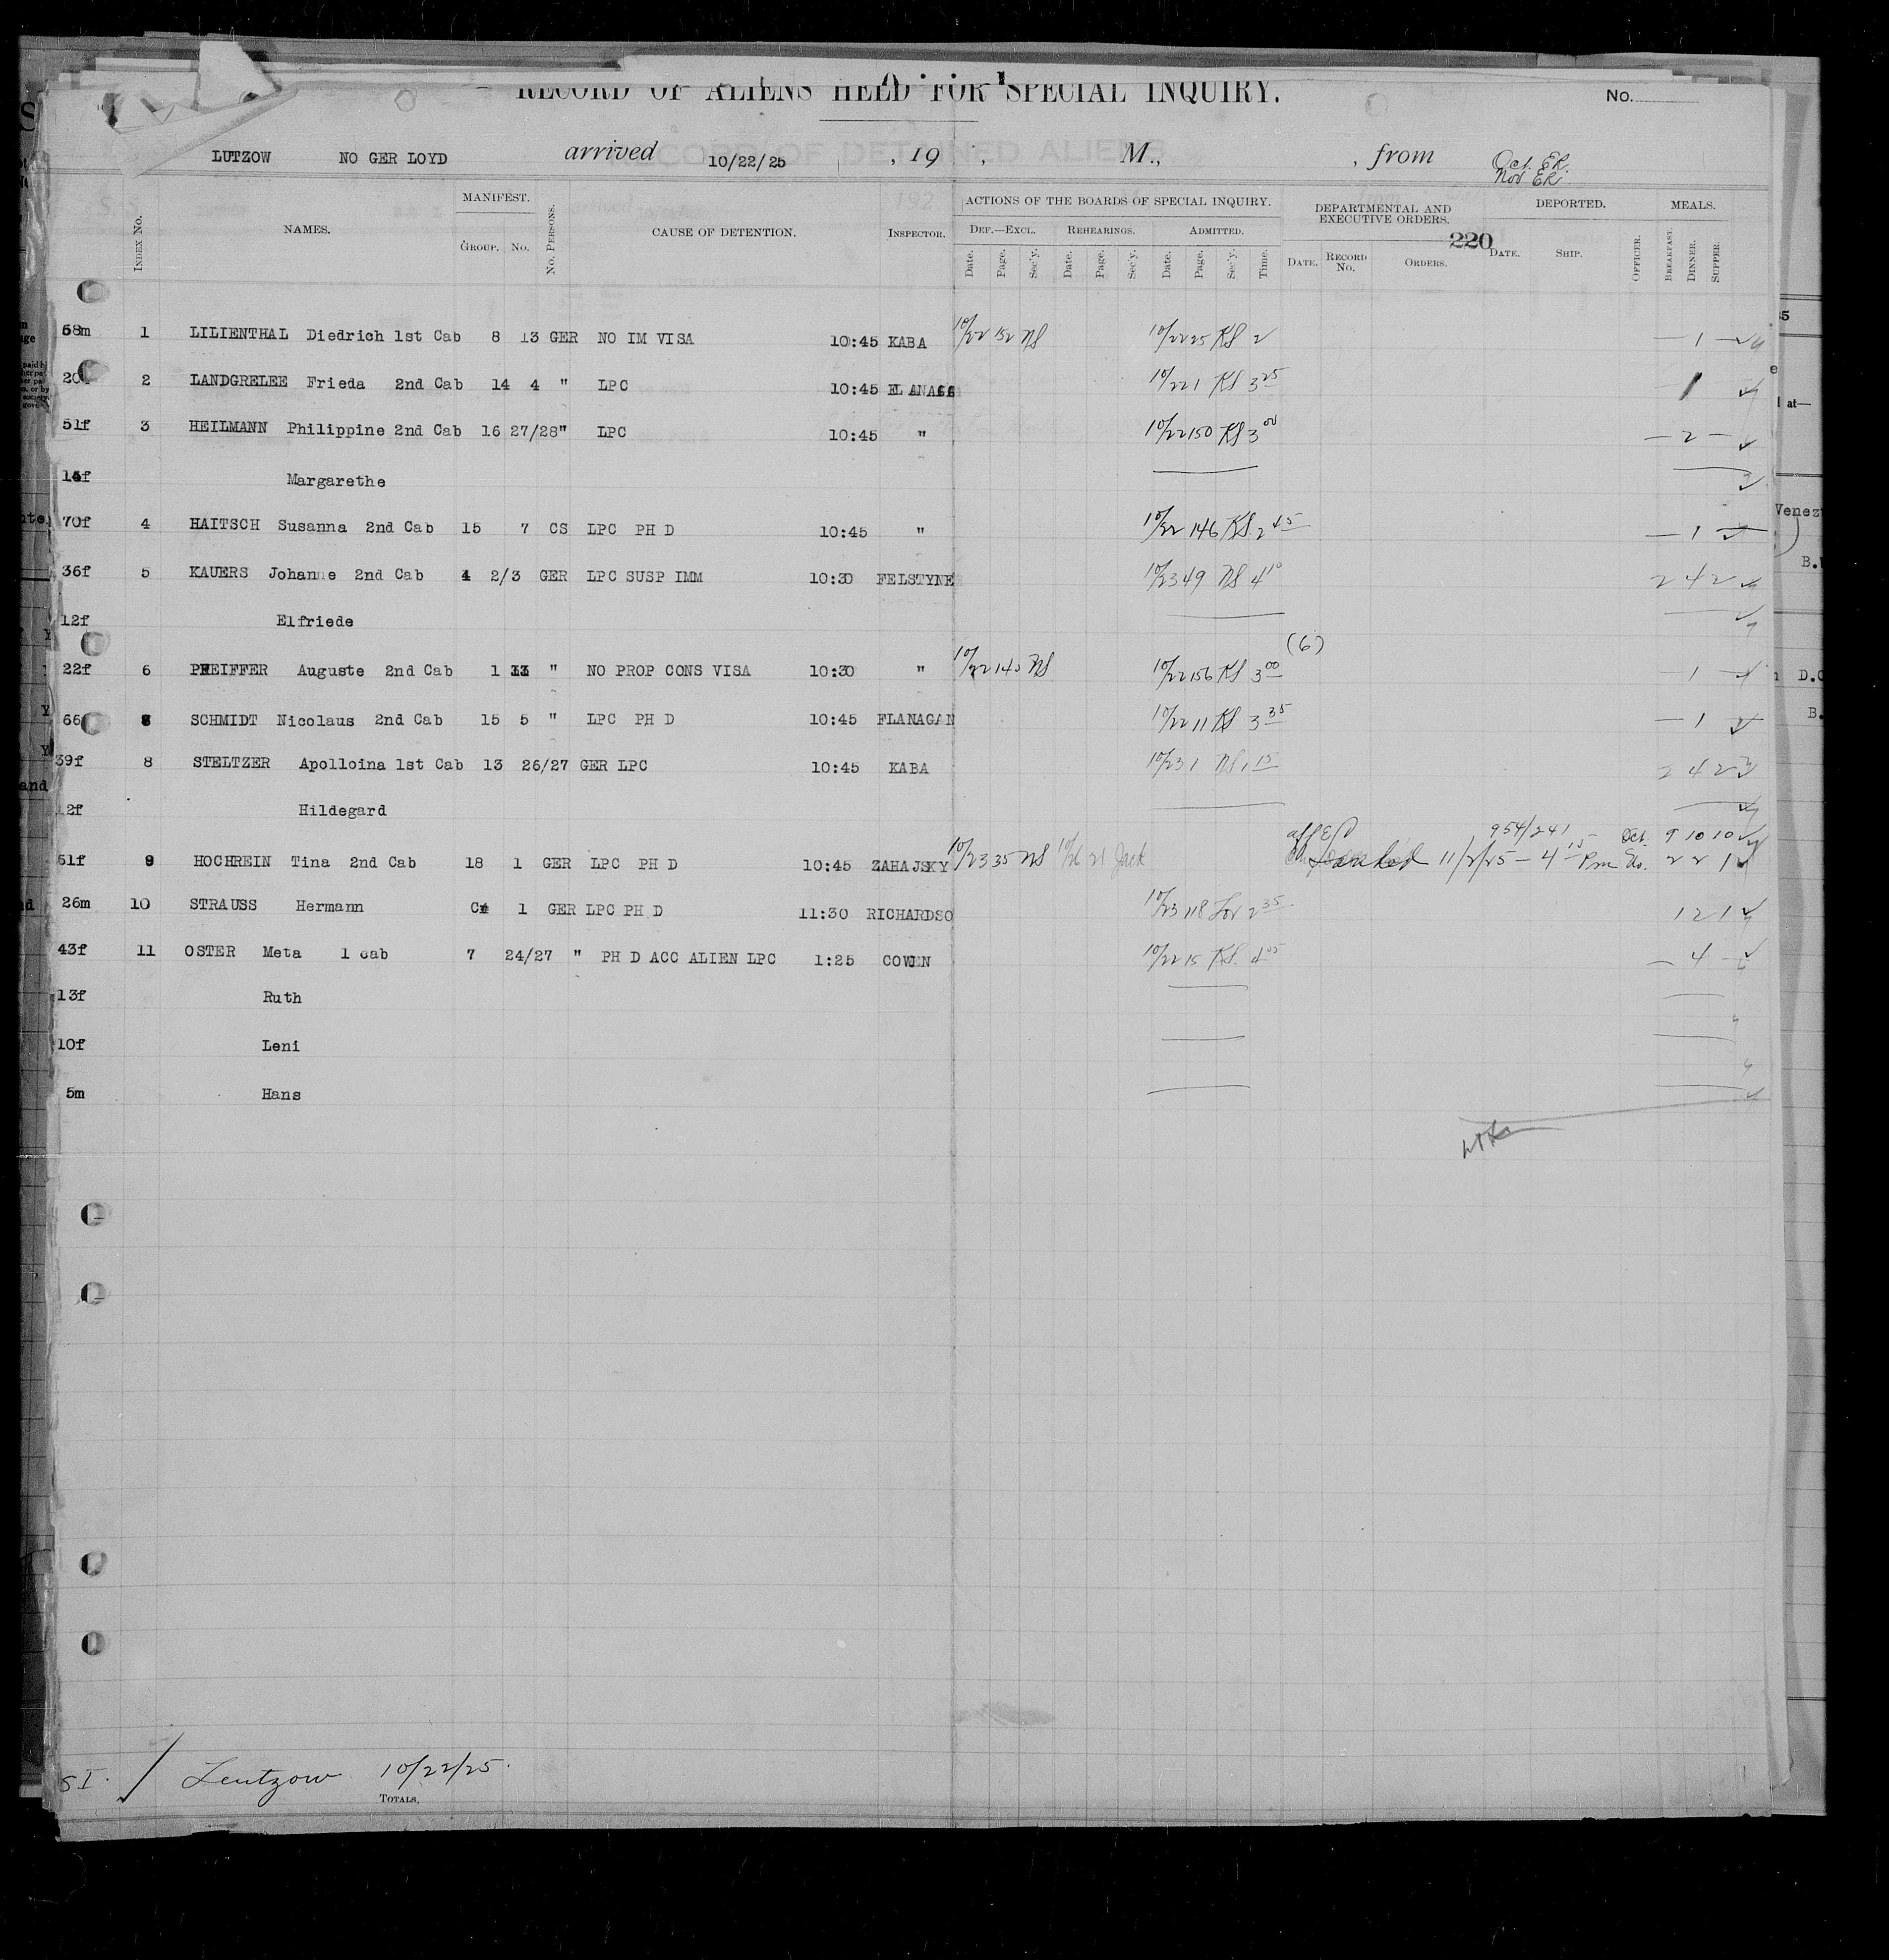 RECORD OF ALIENS HELD FOR SPECIAL INQUIRY. No.
LUTZOW NO GER LOYD arrived 10/22/25 , 19 , M., , from Oct. ER.
Nov ER.
RECORD OF DETAINED ALIENS
MANIFEST. ACTIONS OF THE BOARDS OF SPECIAL INQUIRY. DEPARTMENTAL AND EXECUTIVE ORDERS. DEPORTED. MEALS.
INDEX No. NAMES. GROUP. No. No. PERSONS. CAUSE OF DETENTION. INSPECTOR. DEF.—EXCL. REHEARINGS. ADMITTED. 220
Date. Page. Sec'y. Date. Page. Sec'y. Date. Page. Sec'y. Time. DATE. RECORD No. ORDERS. DATE. SHIP. OFFICER. BREAKFAST. DINNER. SUPPER.
58m 1 LILIENTHAL Diedrich 1st Cab 8 13 GER NO IM VISA 10:45 KABA 10/22 152 NS 10/22 25 KS 2 — 1 —
2 LANDGRELEE Frieda 2nd Cab 14 4 " LPC 10:45 10/22 1 KS 3 25 1
51f 3 HEILMANN Philippine 2nd Cab 16 27/28 " LPC 10:45 " 10/22 150 KS 3 00 — 2 —
Margarethe
70f 4 HAITSCH Susanna 2nd Cab 15 7 CS LPC PH D 10:45 " 10/22 146 KS 2 45 — 1 —
36f 5 KAUERS Johanne 2nd Cab 4 2/3 GER LPC SUSP IMM 10:30 FELSTYNE 10/23 49 NS 4 10 2 4 2
12f Elfriede
(6)
22f 6 PFEIFFER Auguste 2nd Cab 1 " NO PROP CONS VISA 10:30 " 10/22 140 NS 10/22 156 KS 3 00 — 1 —
66 SCHMIDT Nicolaus 2nd Cab 15 5 " LPC PH D 10:45 FLANAGAN 10/22 11 KS 3 35 — 1 —
39f 8 STELTZER Apolloina 1st Cab 13 26/27 GER LPC 10:45 KABA 10/23 1 NS 1 15 2 4 2
12f Hildegard
954/241 Oct. 9 10 10
61f 9 HOCHREIN Tina 2nd Cab 18 1 GER LPC PH D 10:45 ZAHAJSKY 10/23 35 NS 10/26 21 Jack 11/2/25 — 4 15 Pm 2 2 1
26m 10 STRAUSS Hermann 1 GER LPC PH D 11:30 RICHARDSO 10/23 118 2 35 1 2 1
43f 11 OSTER Meta 1 cab 7 24/27 " PH D ACC ALIEN LPC 1:25 COWEN 10/22 15 KS. 4 05 — 4 —
13f Ruth
10f Leni
5m Hans
SI. / Lutzow 10/22/25.
TOTALS,